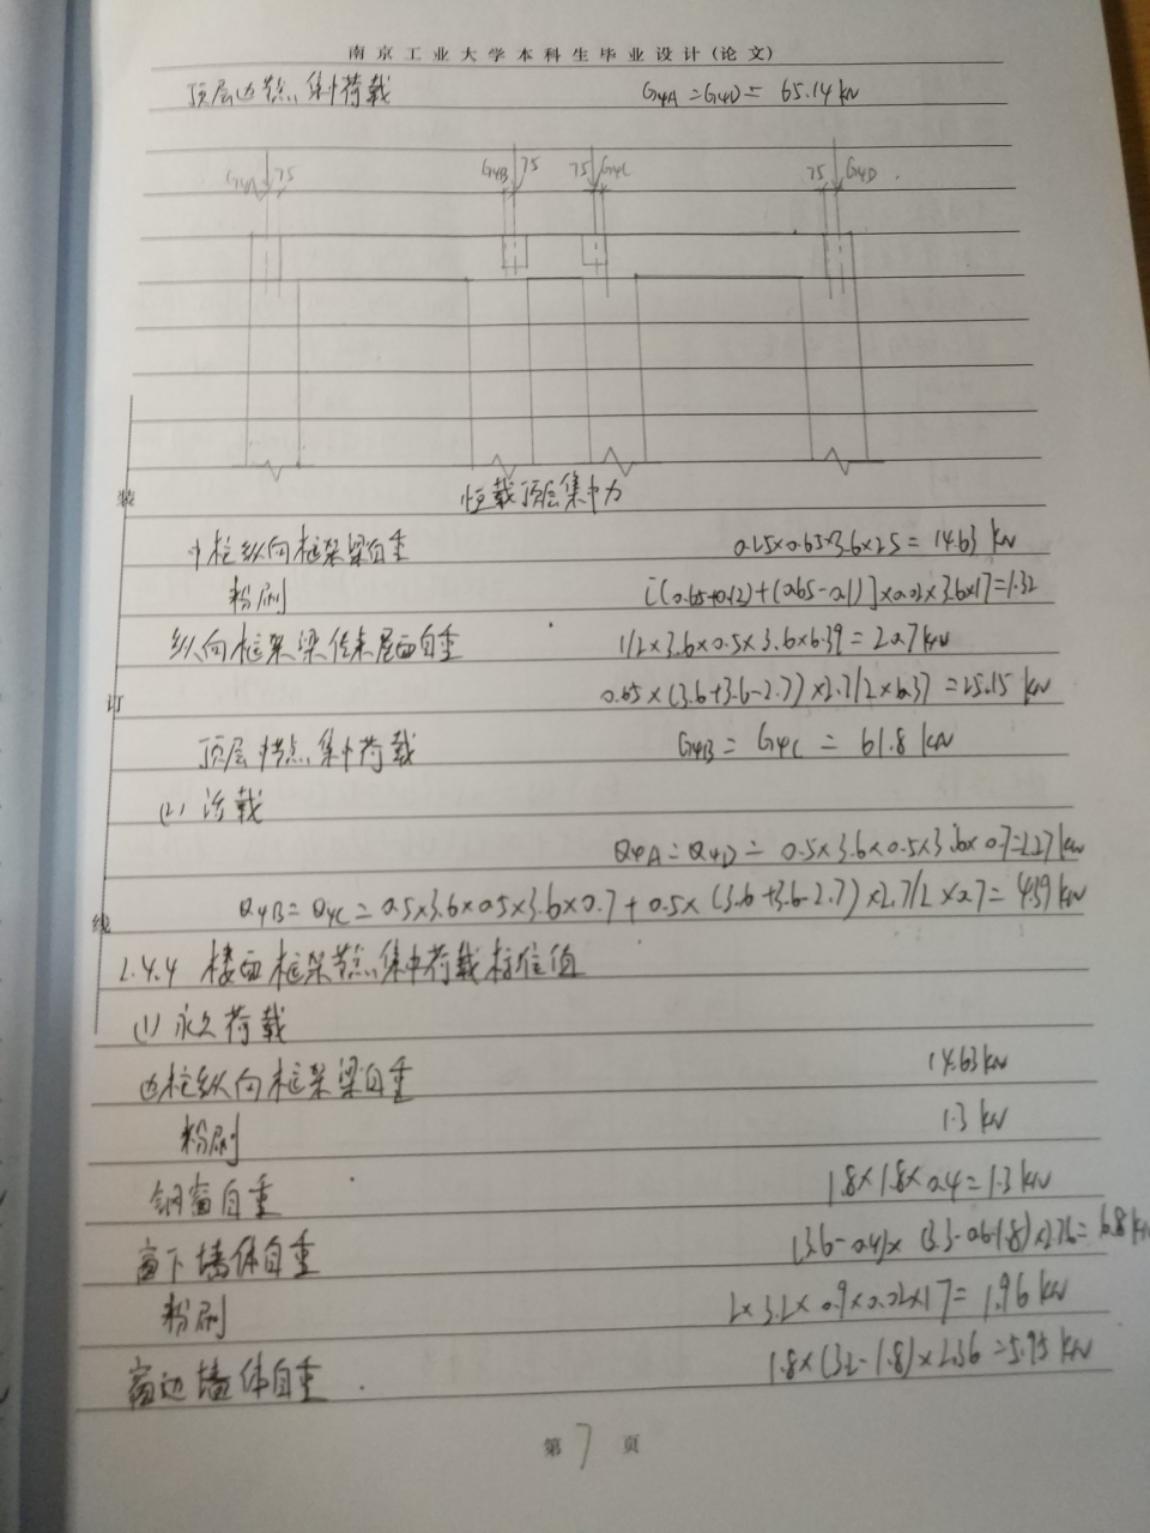 南京工业大学本科生毕业设计(论文)
顶层边节点集中荷载 G4A=G4D= 65.14kN
G4A 75 G4B 75 75 G4C 75 G4D
恒载顶层集中力
中柱纵向框架梁自重 0.25×0.65×3.6×25= 14.63 kN
粉刷 [(0.65+0.12)+(0.65-0.1)]×0.02×3.6×17=1.32
纵向框架梁传来屋面自重 1/2×3.6×0.5×3.6×6.39= 20.7kN
0.65×(3.6+3.6-2.7)×2.7/2×6.37 =25.15 kN
顶层中节点集中荷载 G4B= G4C = 61.8 kN
(2) 活载
Q4A=Q4D= 0.5×3.6×0.5×3.6×0.7=2.27kN
Q4B= Q4C= 0.5×3.6×0.5×3.6×0.7+ 0.5× (3.6+3.6-2.7)×2.7/2 ×0.7= 4.39 kN
2.4.4 楼面框架节点集中荷载标准值
(1) 永久荷载
边柱纵向框架梁自重 14.63kN
粉刷 1.3 kN
钢窗自重 1.8×1.8×0.4=1.3 kN
窗下墙体自重 (3.6-0.4)× (3.3-0.6-1.8)×2.36= 6.8 kN
粉刷 2×3.2×0.9×0.02×17= 1.96 kN
窗边墙体自重 1.8×(3.2-1.8)×2.36=5.95 kN
装
订
线
第 7 页